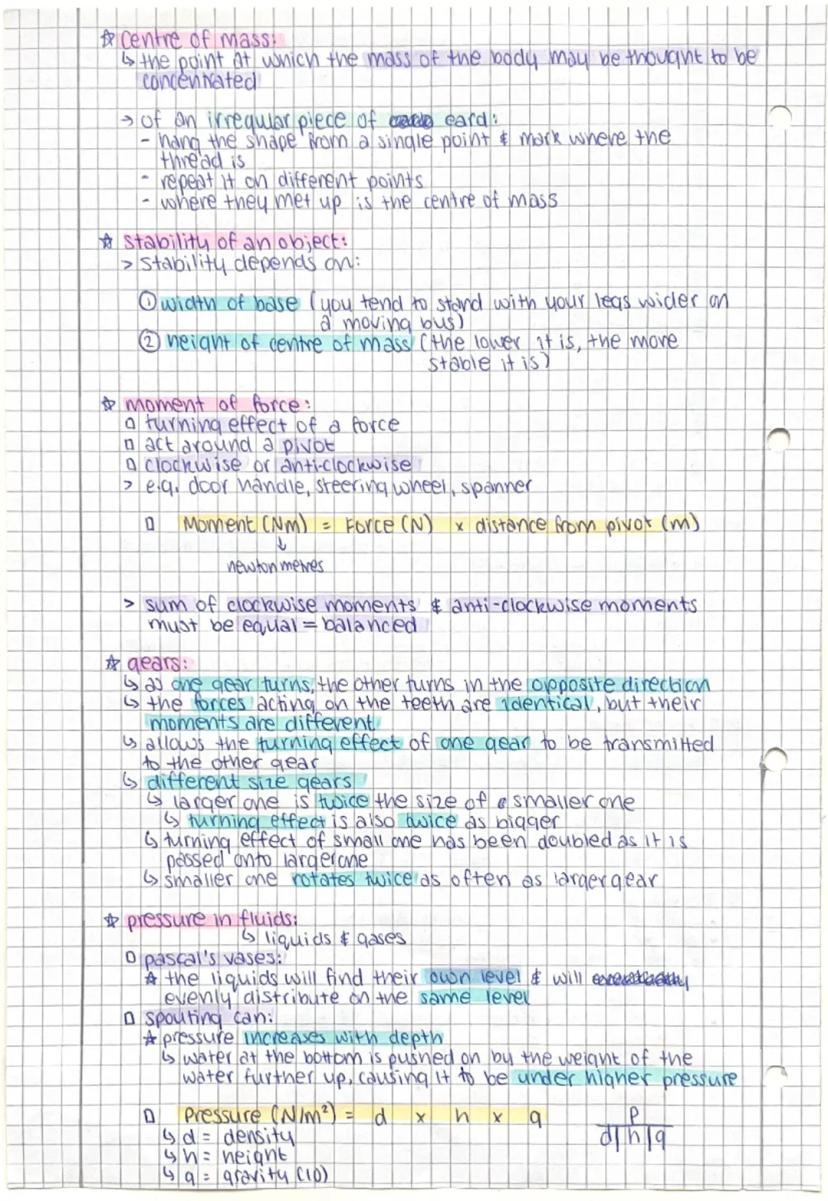 ☆ centre of mass:
↳ the point at which the mass of the body may be thought to be
concentrated
→ of an irregular piece of card:
- hang the shape from a single point & mark where the
thread is
- repeat it on different points
- where they met up is the centre of mass
☆ stability of an object:
> stability depends on:
① width of base (you tend to stand with your legs wider on
a moving bus)
② height of centre of mass (the lower it is, the more
stable it is)
☆ moment of force:
▯ turning effect of a force
▯ act around a pivot
▯ clockwise or anti-clockwise
> e.g. door handle, steering wheel, spanner
▯ Moment (Nm) = Force (N) x distance from pivot (m)
↓
newton metres
> sum of clockwise moments & anti-clockwise moments
must be equal = balanced
☆ gears:
↳ as one gear turns, the other turns in the opposite direction
↳ the forces acting on the teeth are identical, but their
moments are different
↳ allows the turning effect of one gear to be transmitted
to the other gear
↳ different size gears
↳ larger one is twice the size of smaller one
↳ turning effect is also twice as bigger
↳ turning effect of small one has been doubled as it is
passed onto larger one
↳ smaller one rotates twice as often as larger gear
☆ pressure in fluids:
↳ liquids & gases
▯ pascal's vases:
☆ the liquids will find their own level & will
evenly distribute on the same level
▯ spouting can:
☆ pressure increases with depth
↳ water at the bottom is pushed on by the weight of the
water further up, causing it to be under higher pressure
▯ Pressure (N/m²) = d x h x g
P
d|h|g
↳ d = density
↳ h = height
↳ g = gravity (10)